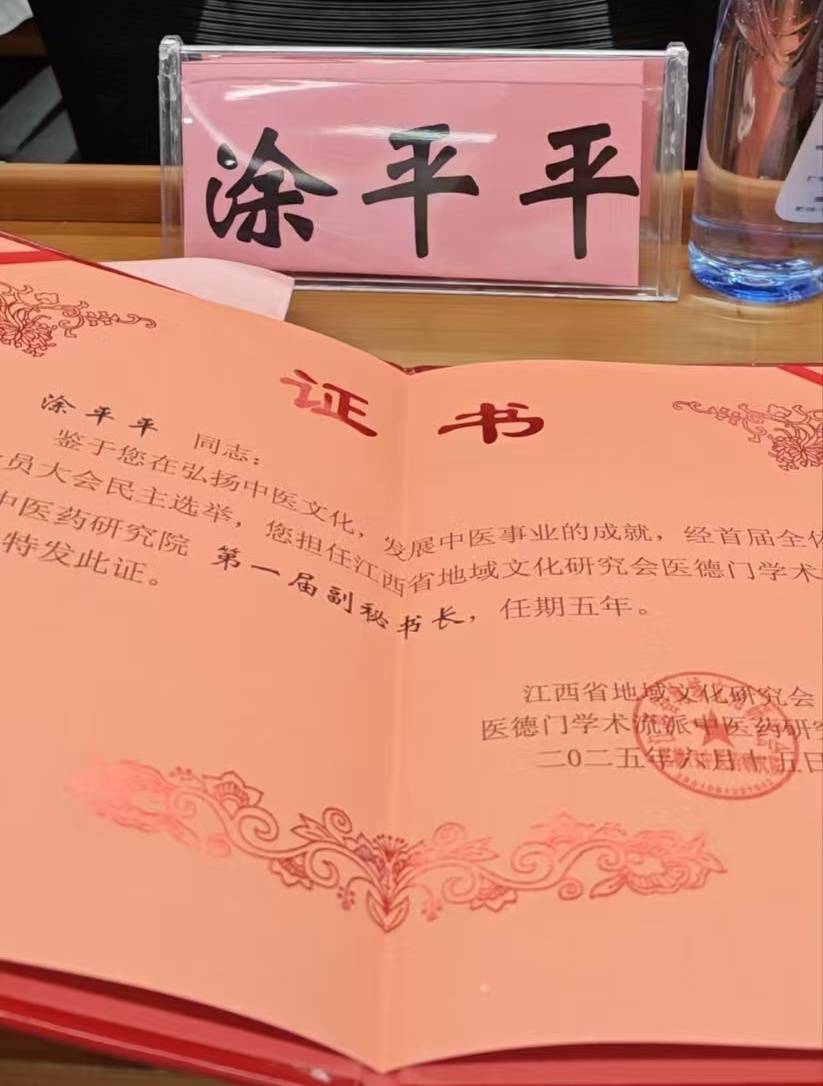 涂平平
证书
涂平平 同志：
鉴于您在弘扬中医文化，发展中医事业的成就，经首届全体
员大会民主选举，您担任江西省地域文化研究会医德门学术
中医药研究院 第一届副秘书长，任期五年。
特发此证。
江西省地域文化研究会
医德门学术流派中医药研究
二0二五年六月十五日